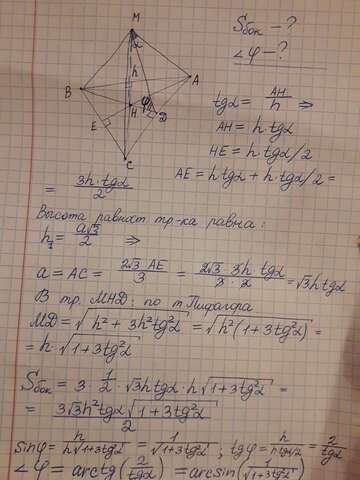 M
α
h
B
A
H
φ
D
E
C
Sбок - ?
∠φ - ?
tgα = AH/h ⇒
AH = h·tgα
HE = h·tgα/2
AE = h tgα + h·tgα/2 =
= 3h·tgα/2
Высота равност тр-ка равна:
h₁ = a√3/2 ⇒
a = AC = 2√3 AE/3 = 2√3·3h tgα/3·2 = √3h tgα
В тр. MHD: по т. Пифагора
MD = √(h² + 3h²tg²α) = √(h²(1+3tg²α)) =
= h·√(1+3tg²α)
Sбок = 3·1/2·√3h tgα·h√(1+3tg²α) =
= 3√3h²tgα√(1+3tg²α)/2
sinφ = h/h√(1+3tg²α) = 1/√(1+3tg²α); tgφ = h/h tgα/2 = 2/tgα
∠φ = arctg(2/tgα) = arcsin(1/√(1+3tg²α))